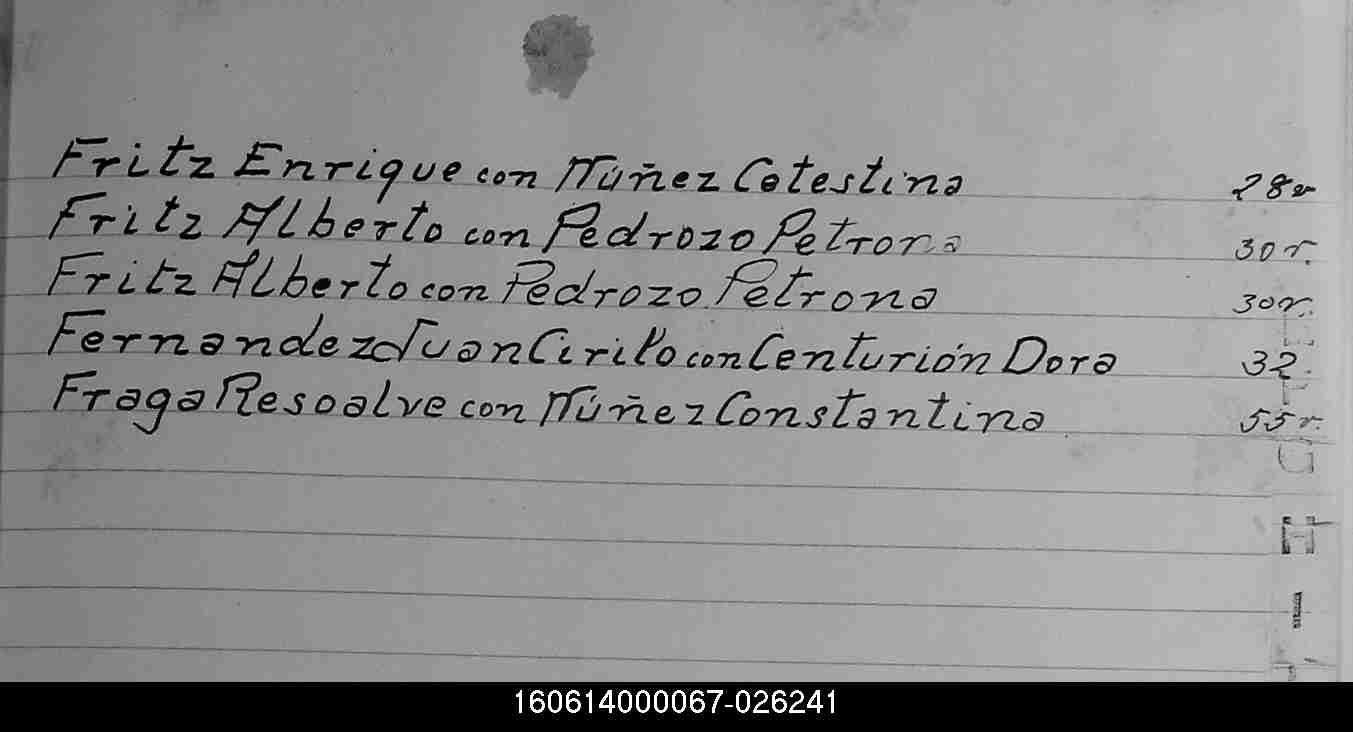 Fritz Enrique con Núñez Cetestina 28v
Fritz Alberto con Pedrozo Petrona 30r.
Fritz Alberto con Pedrozo Petrona 30r.
Fernandez Juan Cirilo con Centurión Dora 32.
Fraga Resoalve con Núñez Constantina 55r.
E
F
G
H
I
J
160614000067-026241